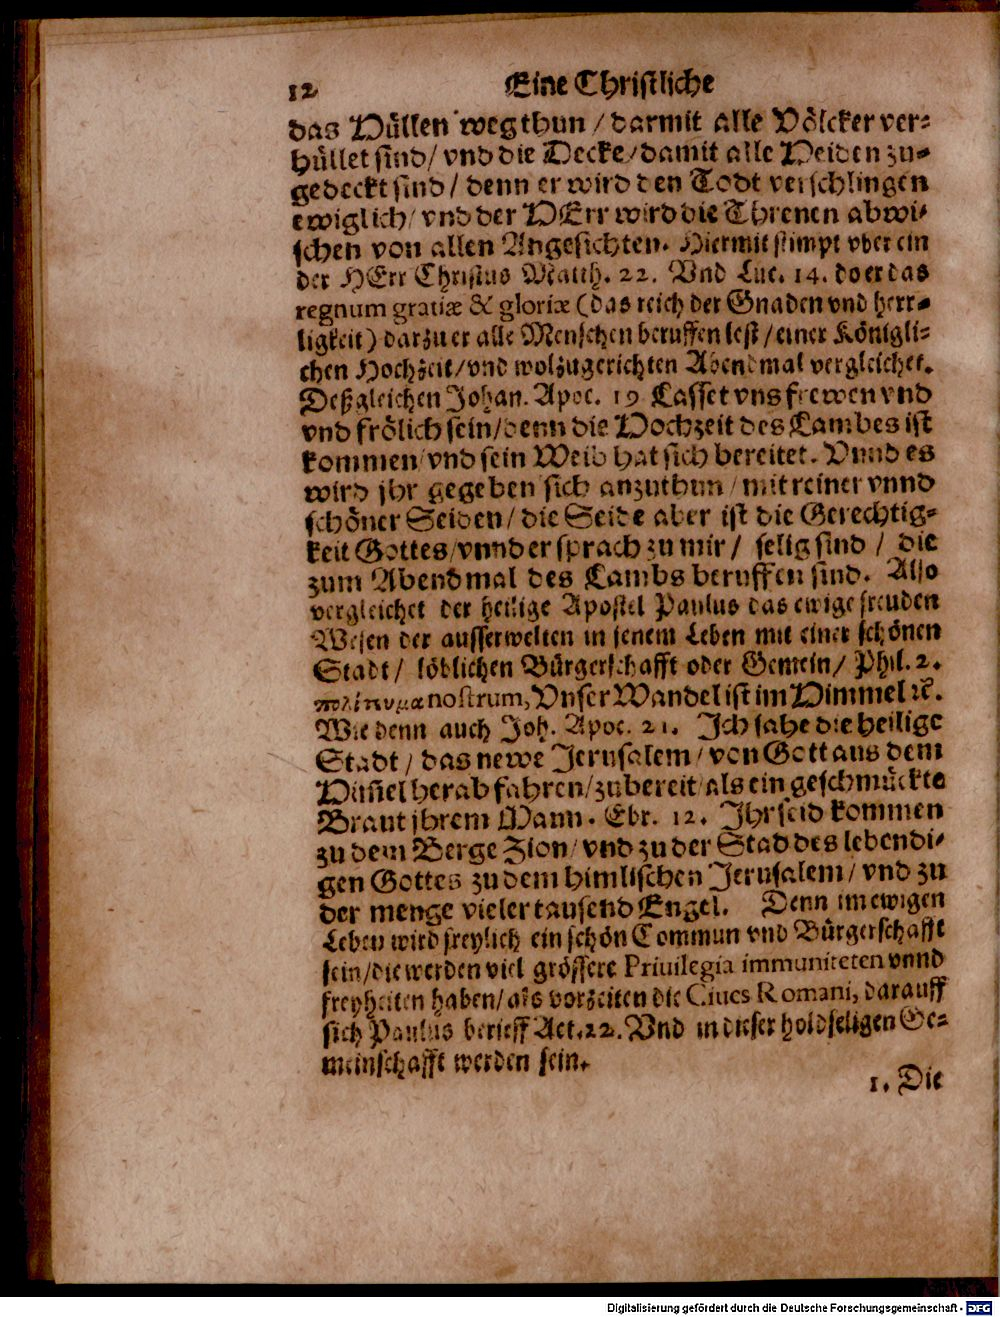 12 Eine Christliche
das Hüllen wegthun / darmit alle Völcker ver-
hüllet sind / vnd die Decke / damit alle Heiden zu-
gedeckt sind / denn er wird den Todt verschlingen
ewiglich / vnd der HErr wird die Threnen abwi-
schen von allen Angesichten. Hiermit stimpt vber ein
der HErr Christus Matth. 22. Vnd Luc. 14. do er das
regnum gratiæ & gloriæ (das reich der Gnaden vnd herr-
ligkeit) darzu er alle Menschen beruffen lest / einer Königli-
chen Hochzeit / vnd wolzugerichten Abendmal vergleichet.
Deßgleichen Johan. Apoc. 19 Lasset vns frewen vnd
vnd frölich sein / denn die Hochzeit des Lambes ist
kommen / vnd sein Weib hat sich bereitet. Vnnd es
wird jhr gegeben sich anzuthun / mit reiner vnnd
schöner Seiden / die Seide aber ist die Gerechtig-
keit Gottes / vnnd er sprach zu mir / selig sind / die
zum Abendmal des Lambs beruffen sind. Also
vergleichet der heilige Apostel Paulus das ewige freuden
Wesen der ausserwelten in jenem Leben mit einer schönen
Stadt / löblichen Bürgerschafft oder Gemein / Phil. 2.
πολίτυμα nostrum, Vnser Wandel ist im Himmel ꝛc.
Wie denn auch Joh. Apoc. 21. Ich sahe die heilige
Stadt / das newe Jerusalem / von Gott aus dem
Himel herab fahren / zubereit / als ein geschmückte
Braut jhrem Mann. Ebr. 12. Ihr seid kommen
zu dem Berge Zion / vnd zu der Stad des lebendi-
gen Gottes zu dem himlischen Jerusalem / vnd zu
der menge vieler tausend Engel. Denn im ewigen
Leben wird freylich ein schön Commun vnd Bürgerschafft
sein / die werden viel grössere Priuilegia immuniteten vnnd
freyheiten haben / als vorzeiten die Ciues Romani, darauff
sich Paulus berieff Act. 22. Vnd in dieser holdseligen Ge-
meinschafft werden sein.
1. Die
Digitalisierung gefördert durch die Deutsche Forschungsgemeinschaft - DFG